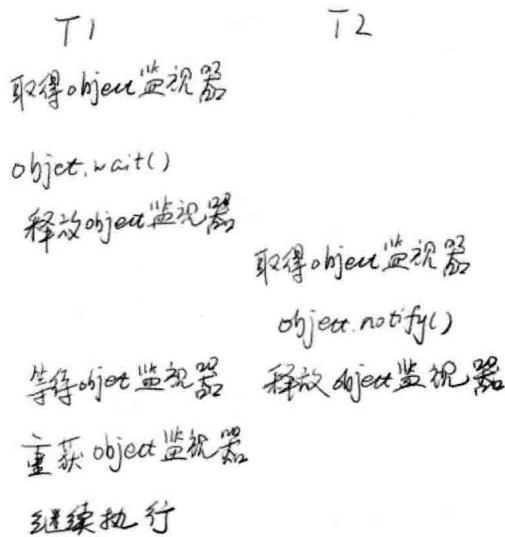 T1 T2
取得object监视器
objet.wait()
释放object监视器
取得object监视器
object.notify()
等待objet监视器 释放object监视器
重获object监视器
继续执行